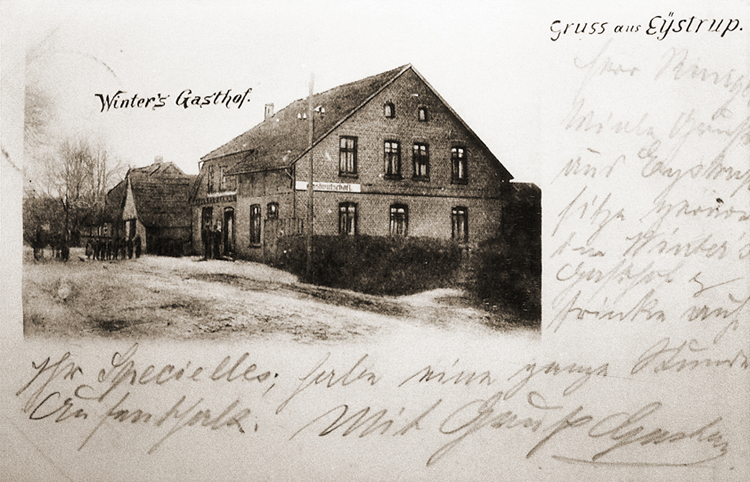 Gruss aus Eÿstrup.
Winter's Gasthof.
Gastwirtschaft.
Herr
Viele Grüße
aus Eystrup
sitze
in Winter's
Gasthof &
trinke auf
Ihr Specielles, habe eine ganze Stunde
Aufenthalt. Mit Gruß